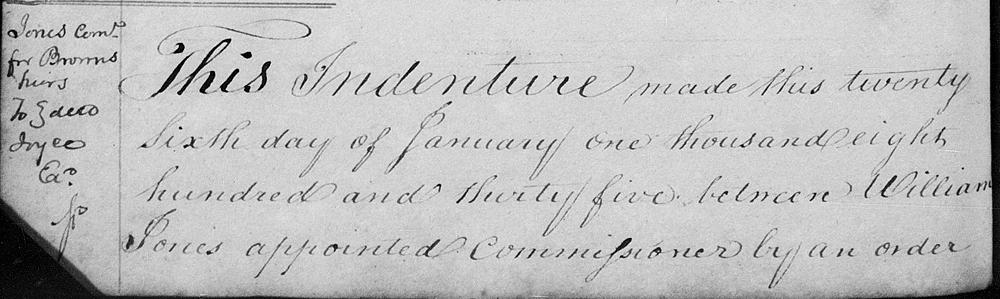 Jones Comr.
for Browns
heirs
To deed
Joyce
Ex.d
This Indenture made this twenty
Sixth day of January one thousand eight
hundred and thirty five between William
Jones appointed Commissioner by an order